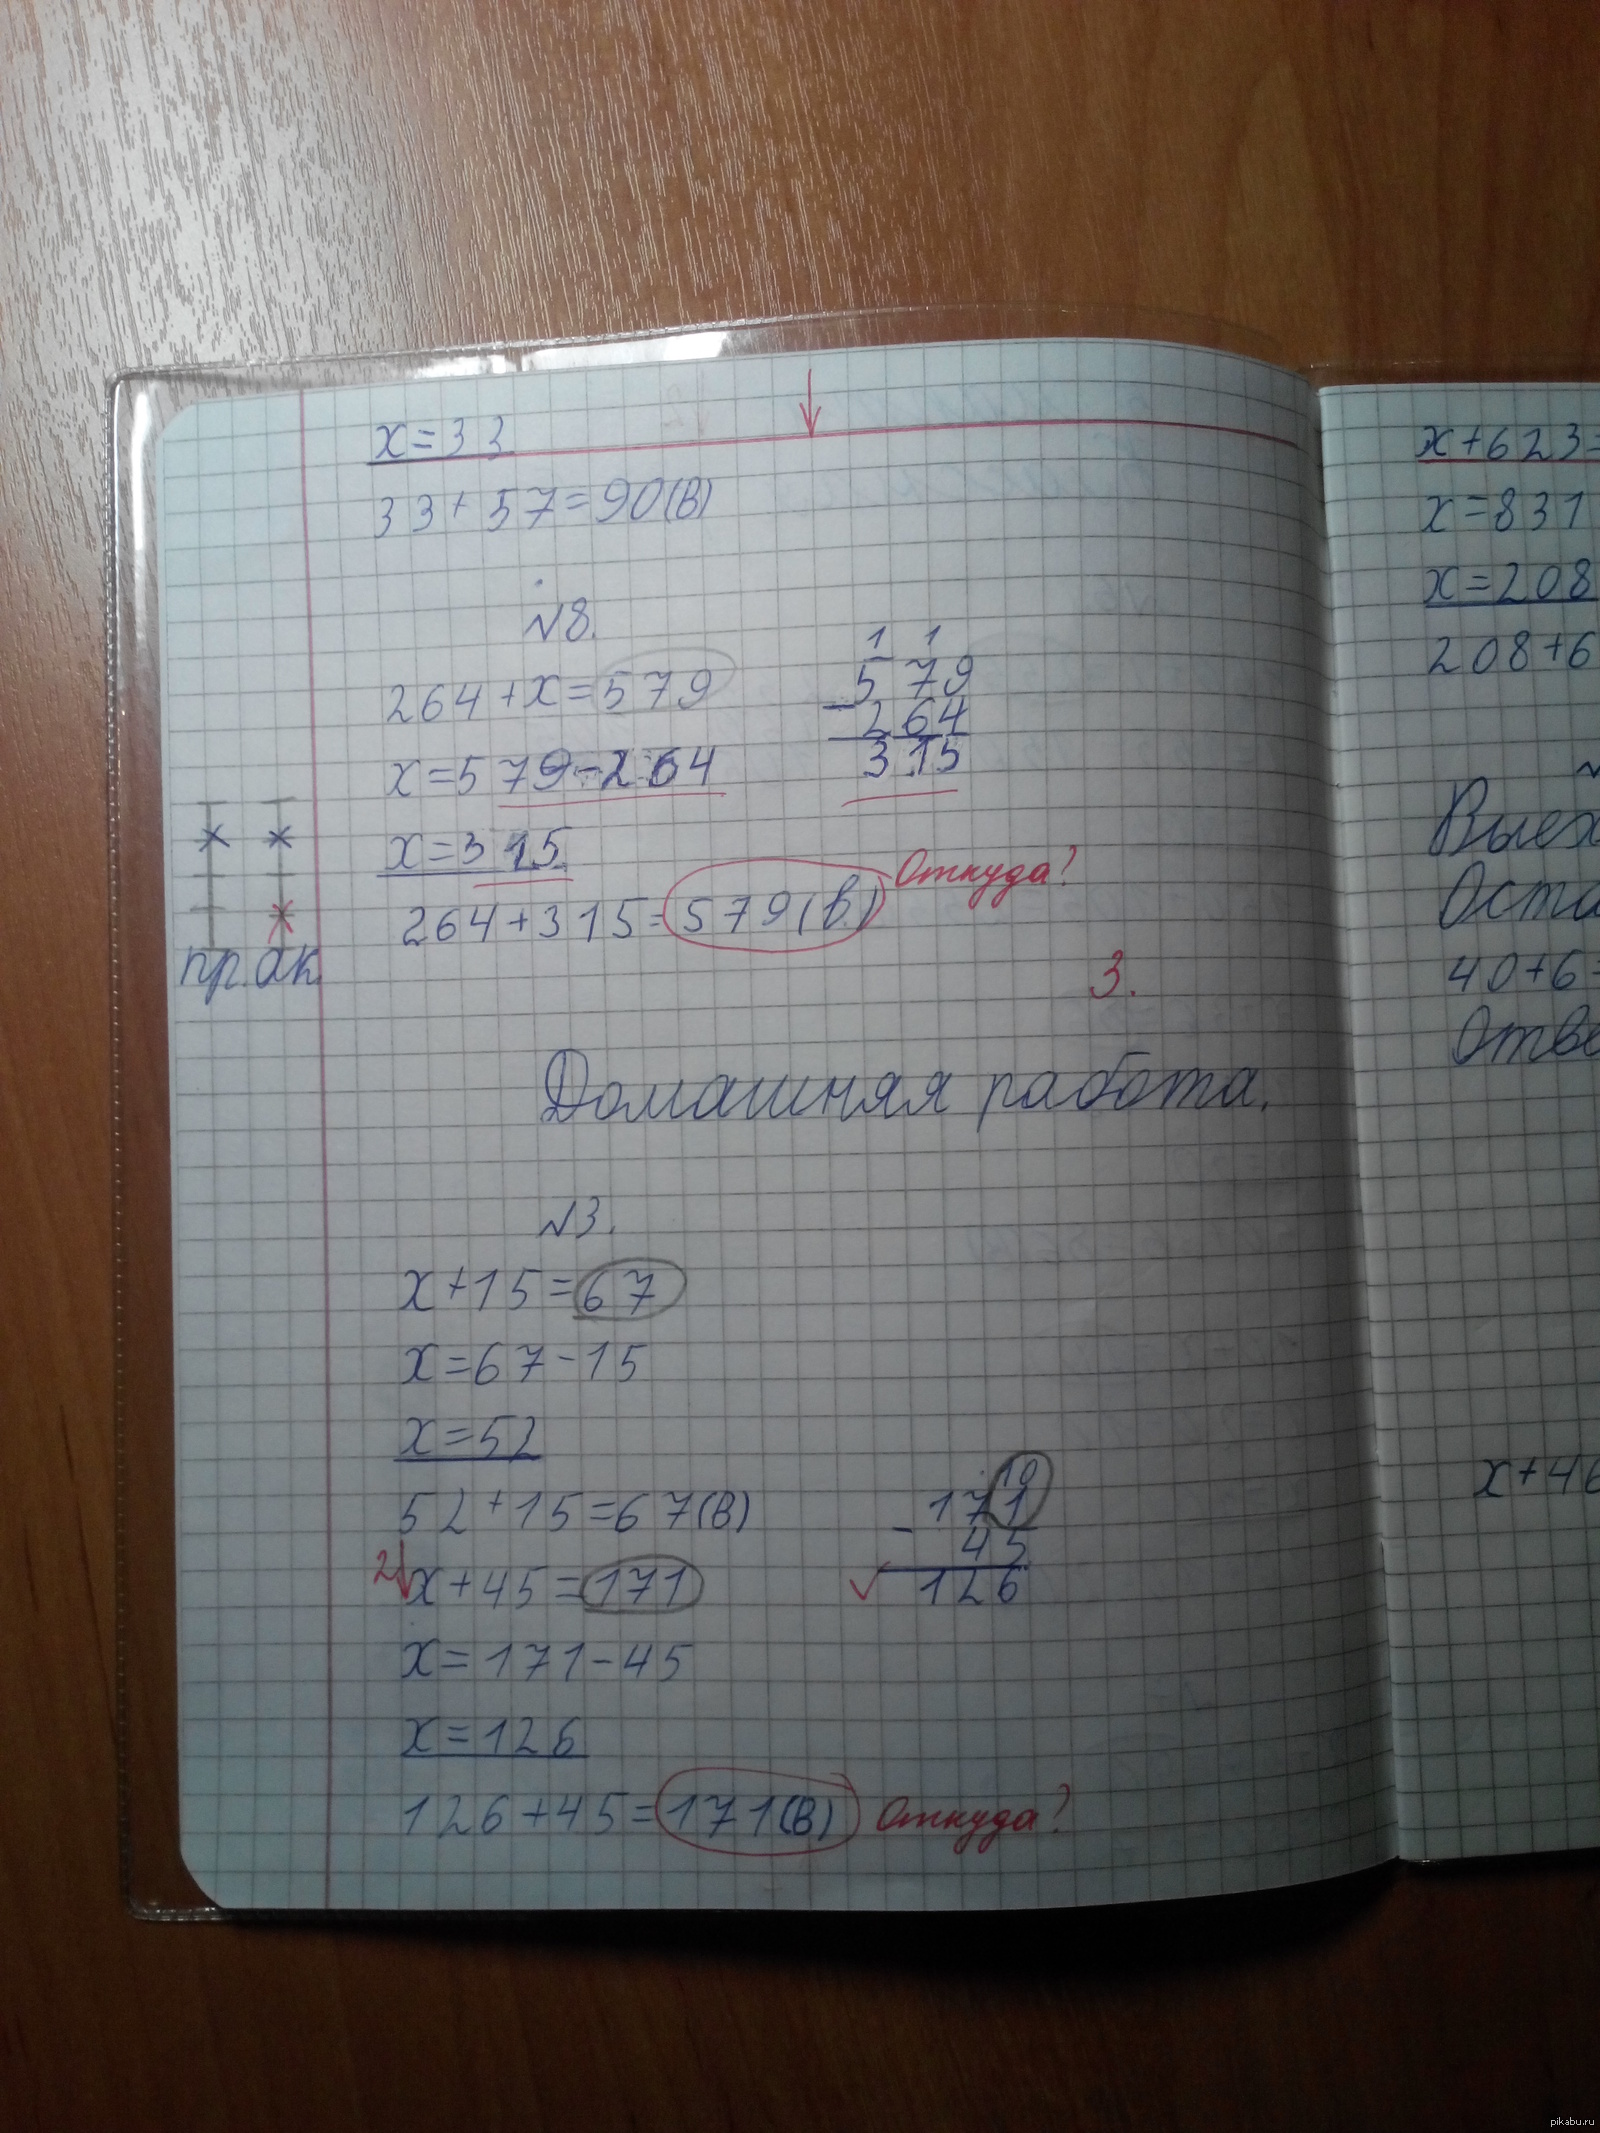 x=33
33+57=90(В)
№8.
264+x=579
x=579-264
x=315
264+315=579(В)
Откуда?
1 1
579
-264
315
пр. ак.
3.
Домашняя работа.
№3.
x+15=67
x=67-15
x=52
52+15=67(В)
2↓
x+45=171
x=171-45
x=126
126+45=171(В)
Откуда?
10
171
-45
126
x+623=
x=831
x=208
208+6
Выех
Оста
40+6=
Отве
x+46
pikabu.ru